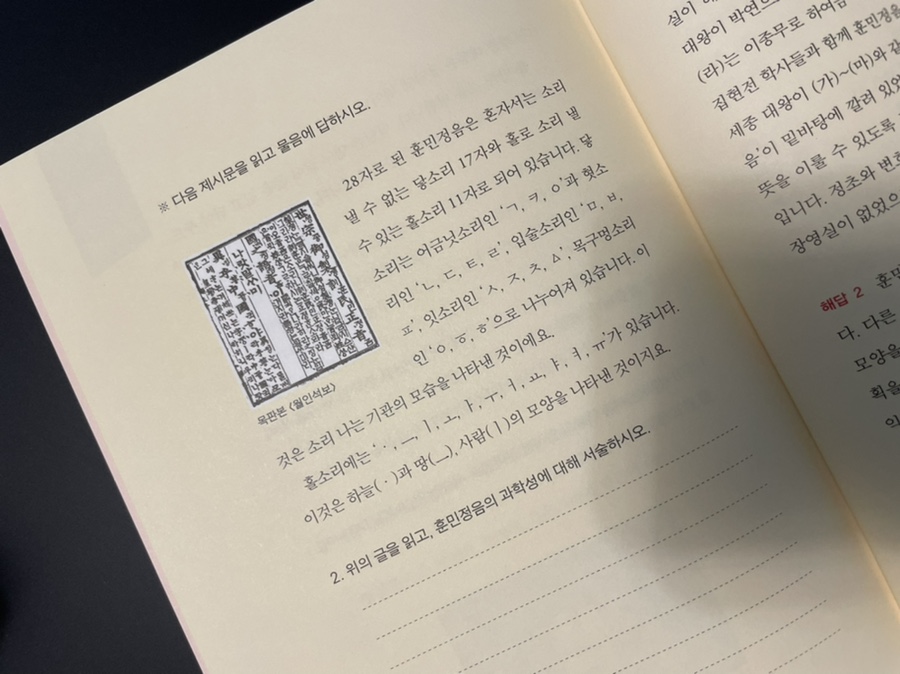 ※ 다음 제시문을 읽고 물음에 답하시오.
28자로 된 훈민정음은 혼자서는 소리
낼 수 없는 닿소리 17자와 홀로 소리 낼
수 있는 홀소리 11자로 되어 있습니다. 닿
소리는 어금닛소리인 ‘ㄱ, ㅋ, ㆁ’과 혓소
리인 ‘ㄴ, ㄷ, ㅌ, ㄹ’, 입술소리인 ‘ㅁ, ㅂ,
ㅍ’, 잇소리인 ‘ㅅ, ㅈ, ㅊ, ㅿ’, 목구멍소리
인 ‘ㅇ, ㆆ, ㅎ’으로 나누어져 있습니다. 이
목판본 〈월인석보〉
것은 소리 나는 기관의 모습을 나타낸 것이에요.
홀소리에는 ‘ㆍ, ㅡ, ㅣ, ㅗ, ㅏ, ㅜ, ㅓ, ㅛ, ㅑ, ㅕ, ㅠ’가 있습니다.
이것은 하늘(ㆍ)과 땅(ㅡ), 사람(ㅣ)의 모양을 나타낸 것이지요.
2. 위의 글을 읽고, 훈민정음의 과학성에 대해 서술하시오.
실이
대왕이 박연으
(라)는 이종무로 하여금
집현전 학사들과 함께 훈민정음
세종 대왕이 (가)~(마)와 같
음’이 밑바탕에 깔려 있었
뜻을 이룰 수 있도록
입니다. 정초와 변효
장영실이 없었으
해답 2 훈민
다. 다른
모양을
획을
의